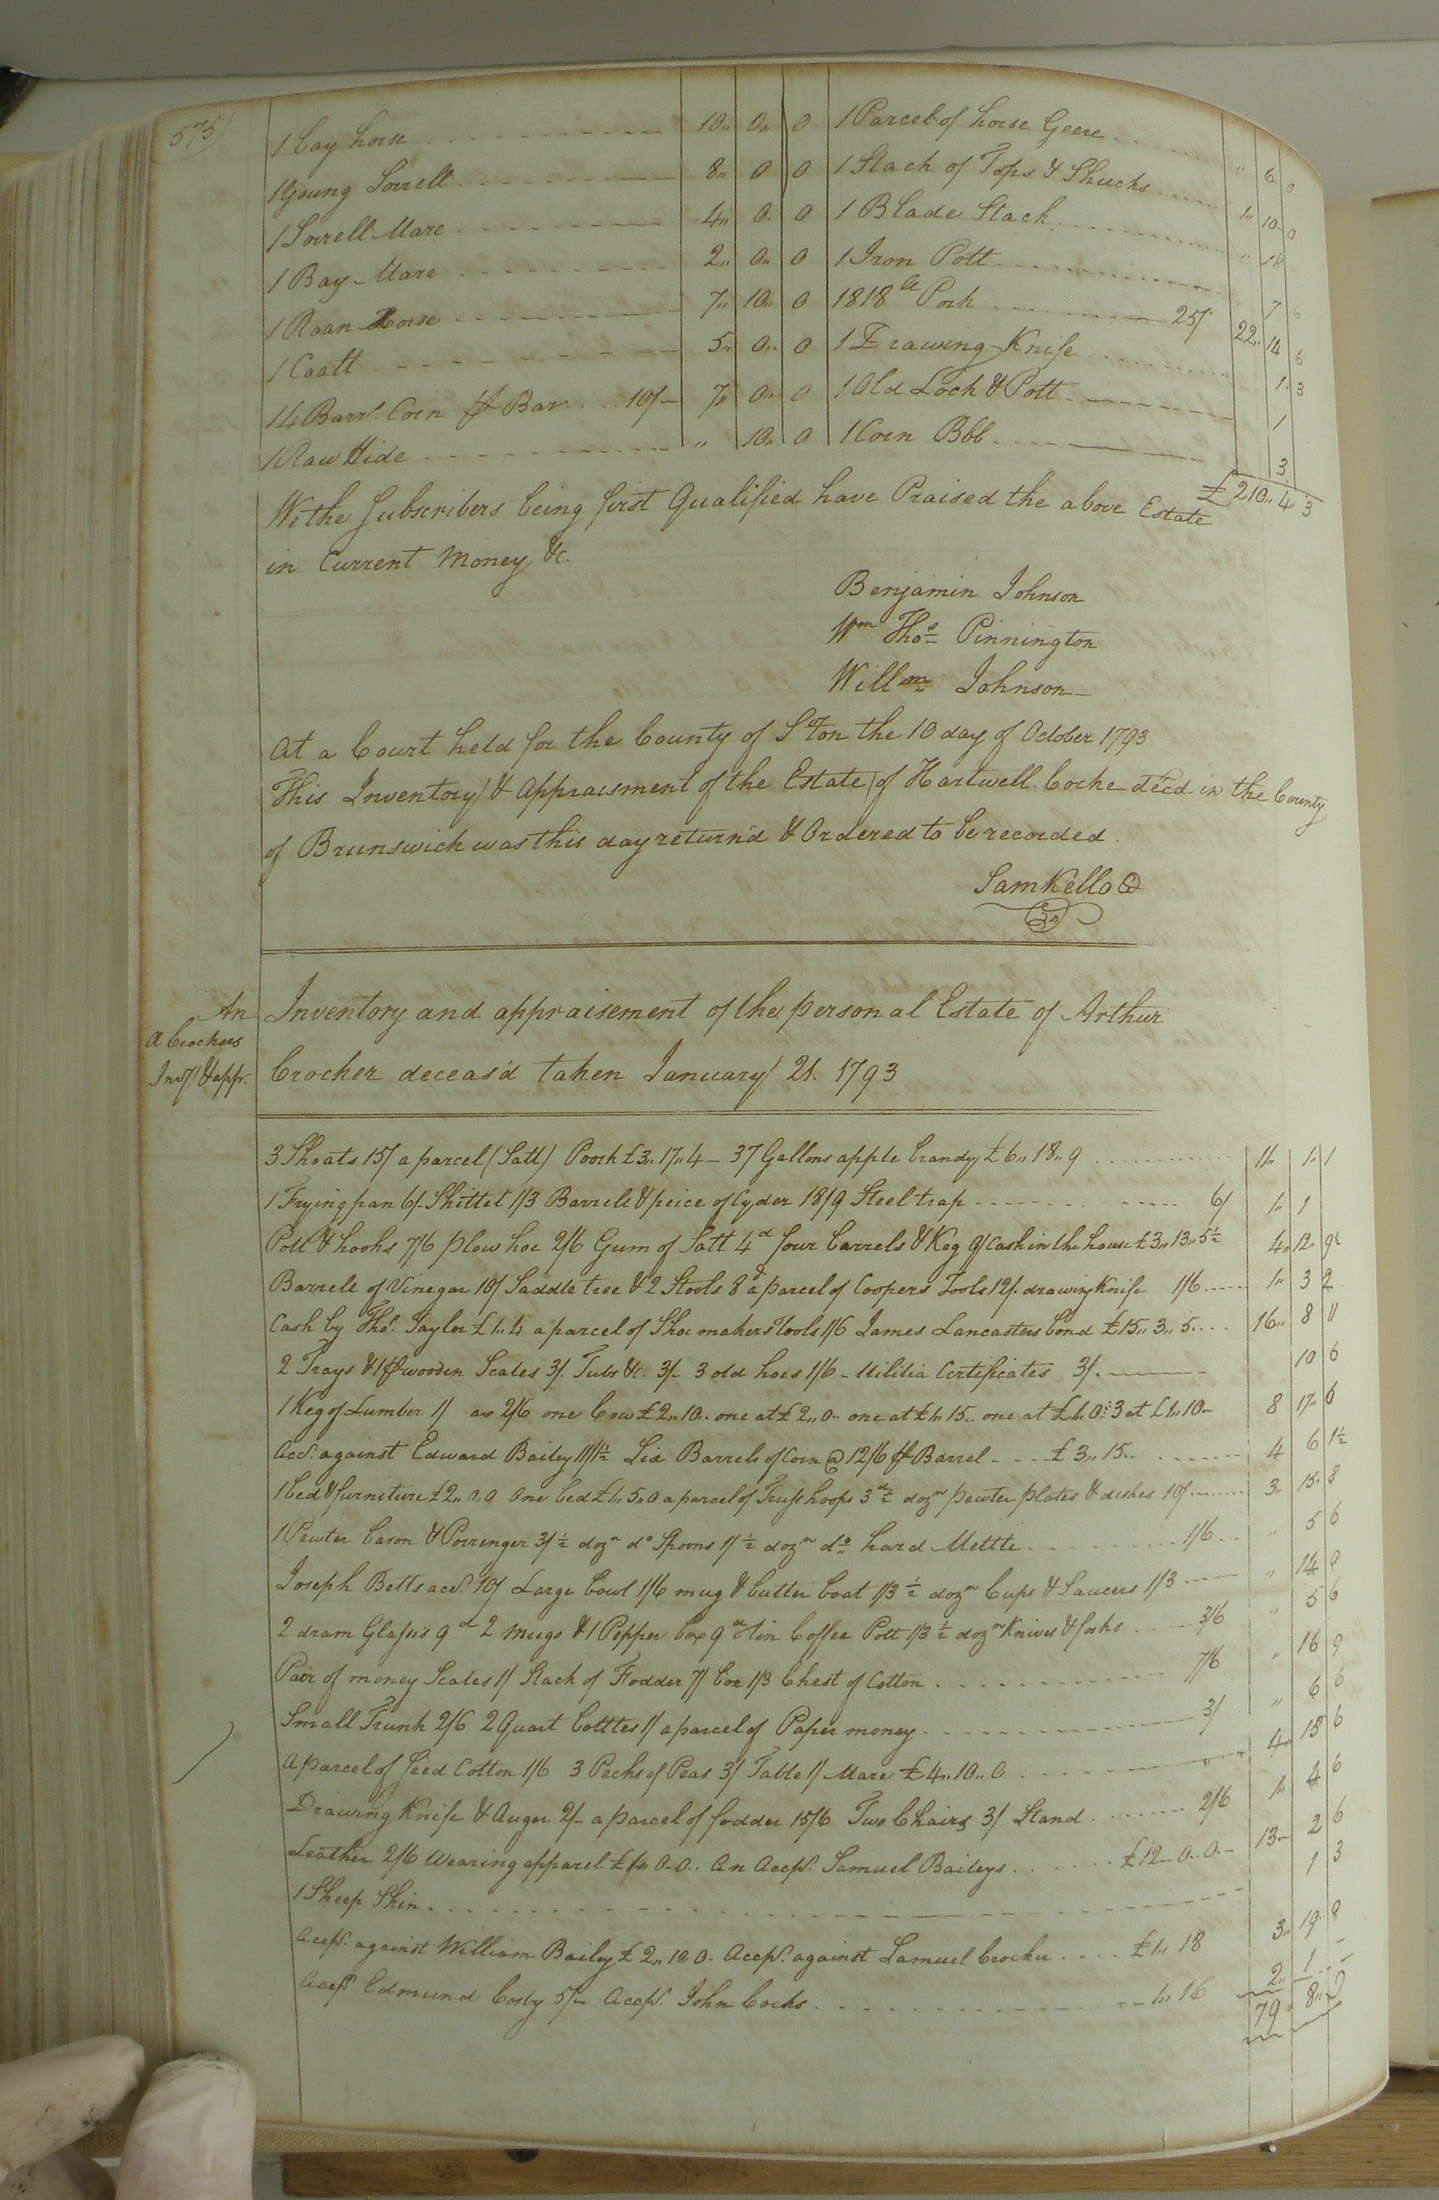 575
1 bay horse 10,, 0,, 0 1 Parcel of horse Geere ,, 6 0
1 Young Sorrell 8,, 0 0 1 Stack of Tops & Shucks 1,, 10 0
1 Sorrell Mare 4,, 0,, 0 1 Blade Stack ,, 18
1 Bay Mare 2,, 0,, 0 1 Iron Pott 7 6
1 Roan Horse 7,, 10,, 0 1818 lb Pork 25/ 22,, 14 6
1 Coatt 5,, 0,, 0 1 Drawing Knife 1 3
14 Barrs. Corn ⅌ Bar. 10/- 7,, 0,, 0 1 Old Lock & Pott 1
1 Raw Hide ,, 10,, 0 1 Corn Bbb 3
£ 210,, 4,, 3
We the Subscribers being first Qualified have Praised the above Estate
in Current Money, &c.
Benjamin Johnson
Wm Thos Pinnington
Willm Johnson
At a Court held for the County of S Ton the 10 day of October 1793
This Inventory & Appraisment of the Estate of Hartwell Cocke decd in the County
of Brunswick was this day return'd & Ordered to be recorded.
Sam Kello
An Inventory and appraisement of the personal Estate of Arthur
A Crockers
Crocker deceas'd taken January 21. 1793
Invy & appr.
3 Shoats 15/ a parcel (Salt) Poork £3,, 17,, 4 - 37 Gallons apple brandy £6,, 18,, 9 11,, 1,, 1
1 Frying pan 6/- Skittet 1/3 Barrels & peice of Cyder 18/9 Steel trap 6/ 1,, 1
Pott & hooks 7/6 plow hoe 2/6 Gum of Salt 4d four barrels & Keg 9/ Cash in the house £3,, 13,, 5½ 4,, 12,, 9½
Barrele of Vinegar 10/ Saddle tree & 2 Stools 8d a parcel of Coopers Tools 12/. drawing Knife 1/6 1,, 3 2
Cash by Thos. Taylor £1,, 4 a parcel of Shoe makers Tools 1/6 James Lancasters bond £15,, 3,, 5 16,, 8 11
2 Trays & 1 ⅌ wooden Scales 3/. Tubs &c. 3/- 3 old hoes 1/6 - Militia Certificates 3/. 10 6
1 Keg of Lumber 1/ ax 2/6 one Cow £2,, 10.. one at £2,, 0.. one at £1,, 15.. one at £1,, 0,, 3 at £1,, 10- 8 17 6
Acct. against Edward Bailey 11/1½ Six Barrels of Corn @ 12/6 ⅌ Barrel £3,, 15.. 4 6 1½
1 bed & furniture £2,, 0,, 0 One bed £1,, 5,, 0 a parcel of Truss hoops 3d ½ dozn pewter plates & dishes 10/ 3,, 15,, 8
1 Pewter bason & Porrenger 3/ ½ dozn do Spoons 1/ ½ dozn do hard Mettle 1/6 ,, 5 6
Joseph Betts acct. 10/ Large bowl 1/6 mug & butter boat 1/3 ½ dozn Cups & Saucers 1/3 ,, 14 0
2 dram Glasses 9d 2 mugs & 1 Pepper box 9d Tin Coffee Pott 1/3 ½ dozn Knives & forks 3/6 ,, 5 6
Pair of money Scales 1/ Stack of Fodder 7/ box 1/3 Chest of Cotton 7/6 ,, 16 9
Small Trunk 2/6 2 Quart bottles 1/ a parcel of Paper money 3/ ,, 6 6
A parcel of Seed Cotton 1/6 3 Pecks of Peas 3/ Table 1/ Mare £4,, 10,, 0 4,, 15 6
Drawing Knife & Auger 2/- a parcel of fodder 15/6 Two Chairs 3/ Stand 2/6 1,, 4 6
Leather 2/6 Wearing apparel £1,, 0.. 0.. An Accpt. Samuel Baileys £12.. 0.. 0.- 13 2 6
1 Sheep Skin 1 3
Accpt. against William Bailey £2,, 12,, 0- Accpt. against Samuel Crocker £1,, 18 3,, 19 0
Accpt Edmund Cosby 5/- Accpt. John Cocks 1,, 16 2,, 1 -
79 8,, 9